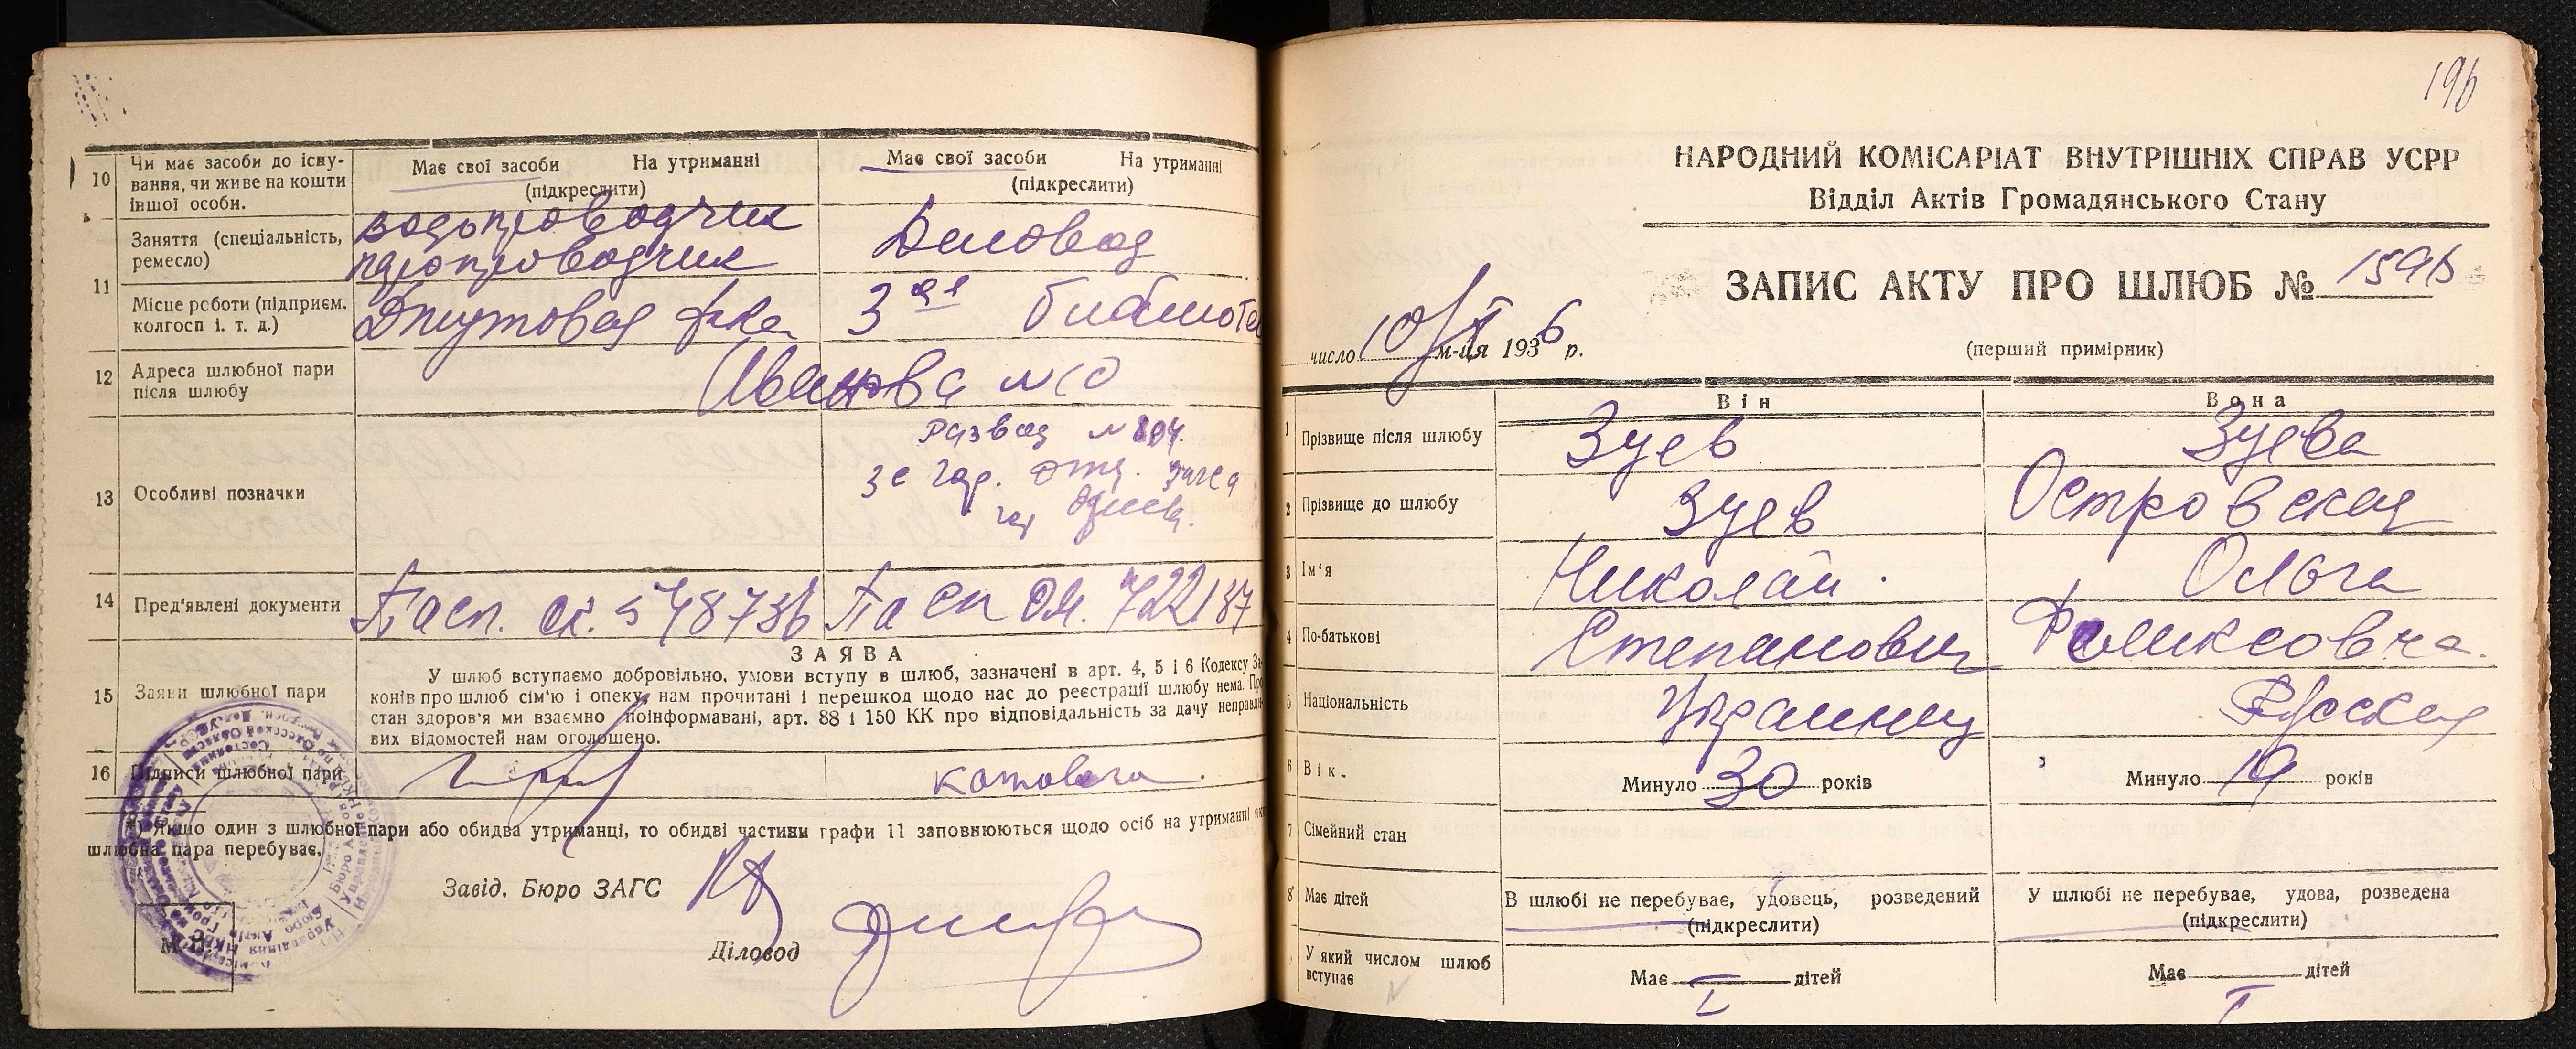 10 Чи має засоби до існу-
вання, чи живе на кошти
іншої особи.
Має свої засоби На утриманні
(підкреслити)
Має свої засоби На утриманні
(підкреслити)
11 Заняття (спеціальність,
ремесло)
водопроводчик
паропроводчик
Диловод
Місце роботи (підприєм.
колгосп і. т. д.)
Джутовая ф-ка
3ая библиоте
12 Адреса шлюбної пари
після шлюбу
Иванова №10
13 Особливі позначки
Развод №
14 Пред'явлені документи
Пасп. 548736
Пасп ОМ. 722137
ЗАЯВА
15 Заяви шлюбної пари
У шлюб вступаємо добровільно, умови вступу в шлюб, зазначені в арт. 4, 5 і 6 Кодексу За-
конів про шлюб сім'ю і опеку, нам прочитані і перешкод щодо нас до реєстрації шлюбу нема. Про
стан здоров'я ми взаємно поінформавані, арт. 88 і 150 КК про відповідальність за дачу неправди-
вих відомостей нам оголошено.
16 Підписи шлюбної пари
*) Якщо один з шлюбної пари або обидва утриманці, то обидві частини графи 11 заповнюються щодо осіб на утриманні
шлюбна пара перебуває.
Завід. Бюро ЗАГС
Діловод
М. П.
196
НАРОДНИЙ КОМІСАРІАТ ВНУТРІШНІХ СПРАВ УСРР
Відділ Актів Громадянського Стану
ЗАПИС АКТУ ПРО ШЛЮБ № 1596
число 10/X м-ця 1936 р.
(перший примірник)
Він Вона
1 Прізвище після шлюбу Зуев Зуева
2 Прізвище до шлюбу Зуев Островская
3 Ім'я Николай Ольга
4 По-батькові Степанович Феликсовна.
5 Національність Украинец Русская
6 Вік. Минуло 30 років Минуло 19 років
7 Сімейний стан
8 Має дітей
В шлюбі не перебуває, удовець, розведений
(підкреслити)
У шлюбі не перебуває, удова, розведена
(підкреслити)
У який числом шлюб
вступає
Має дітей
I
Має дітей
I